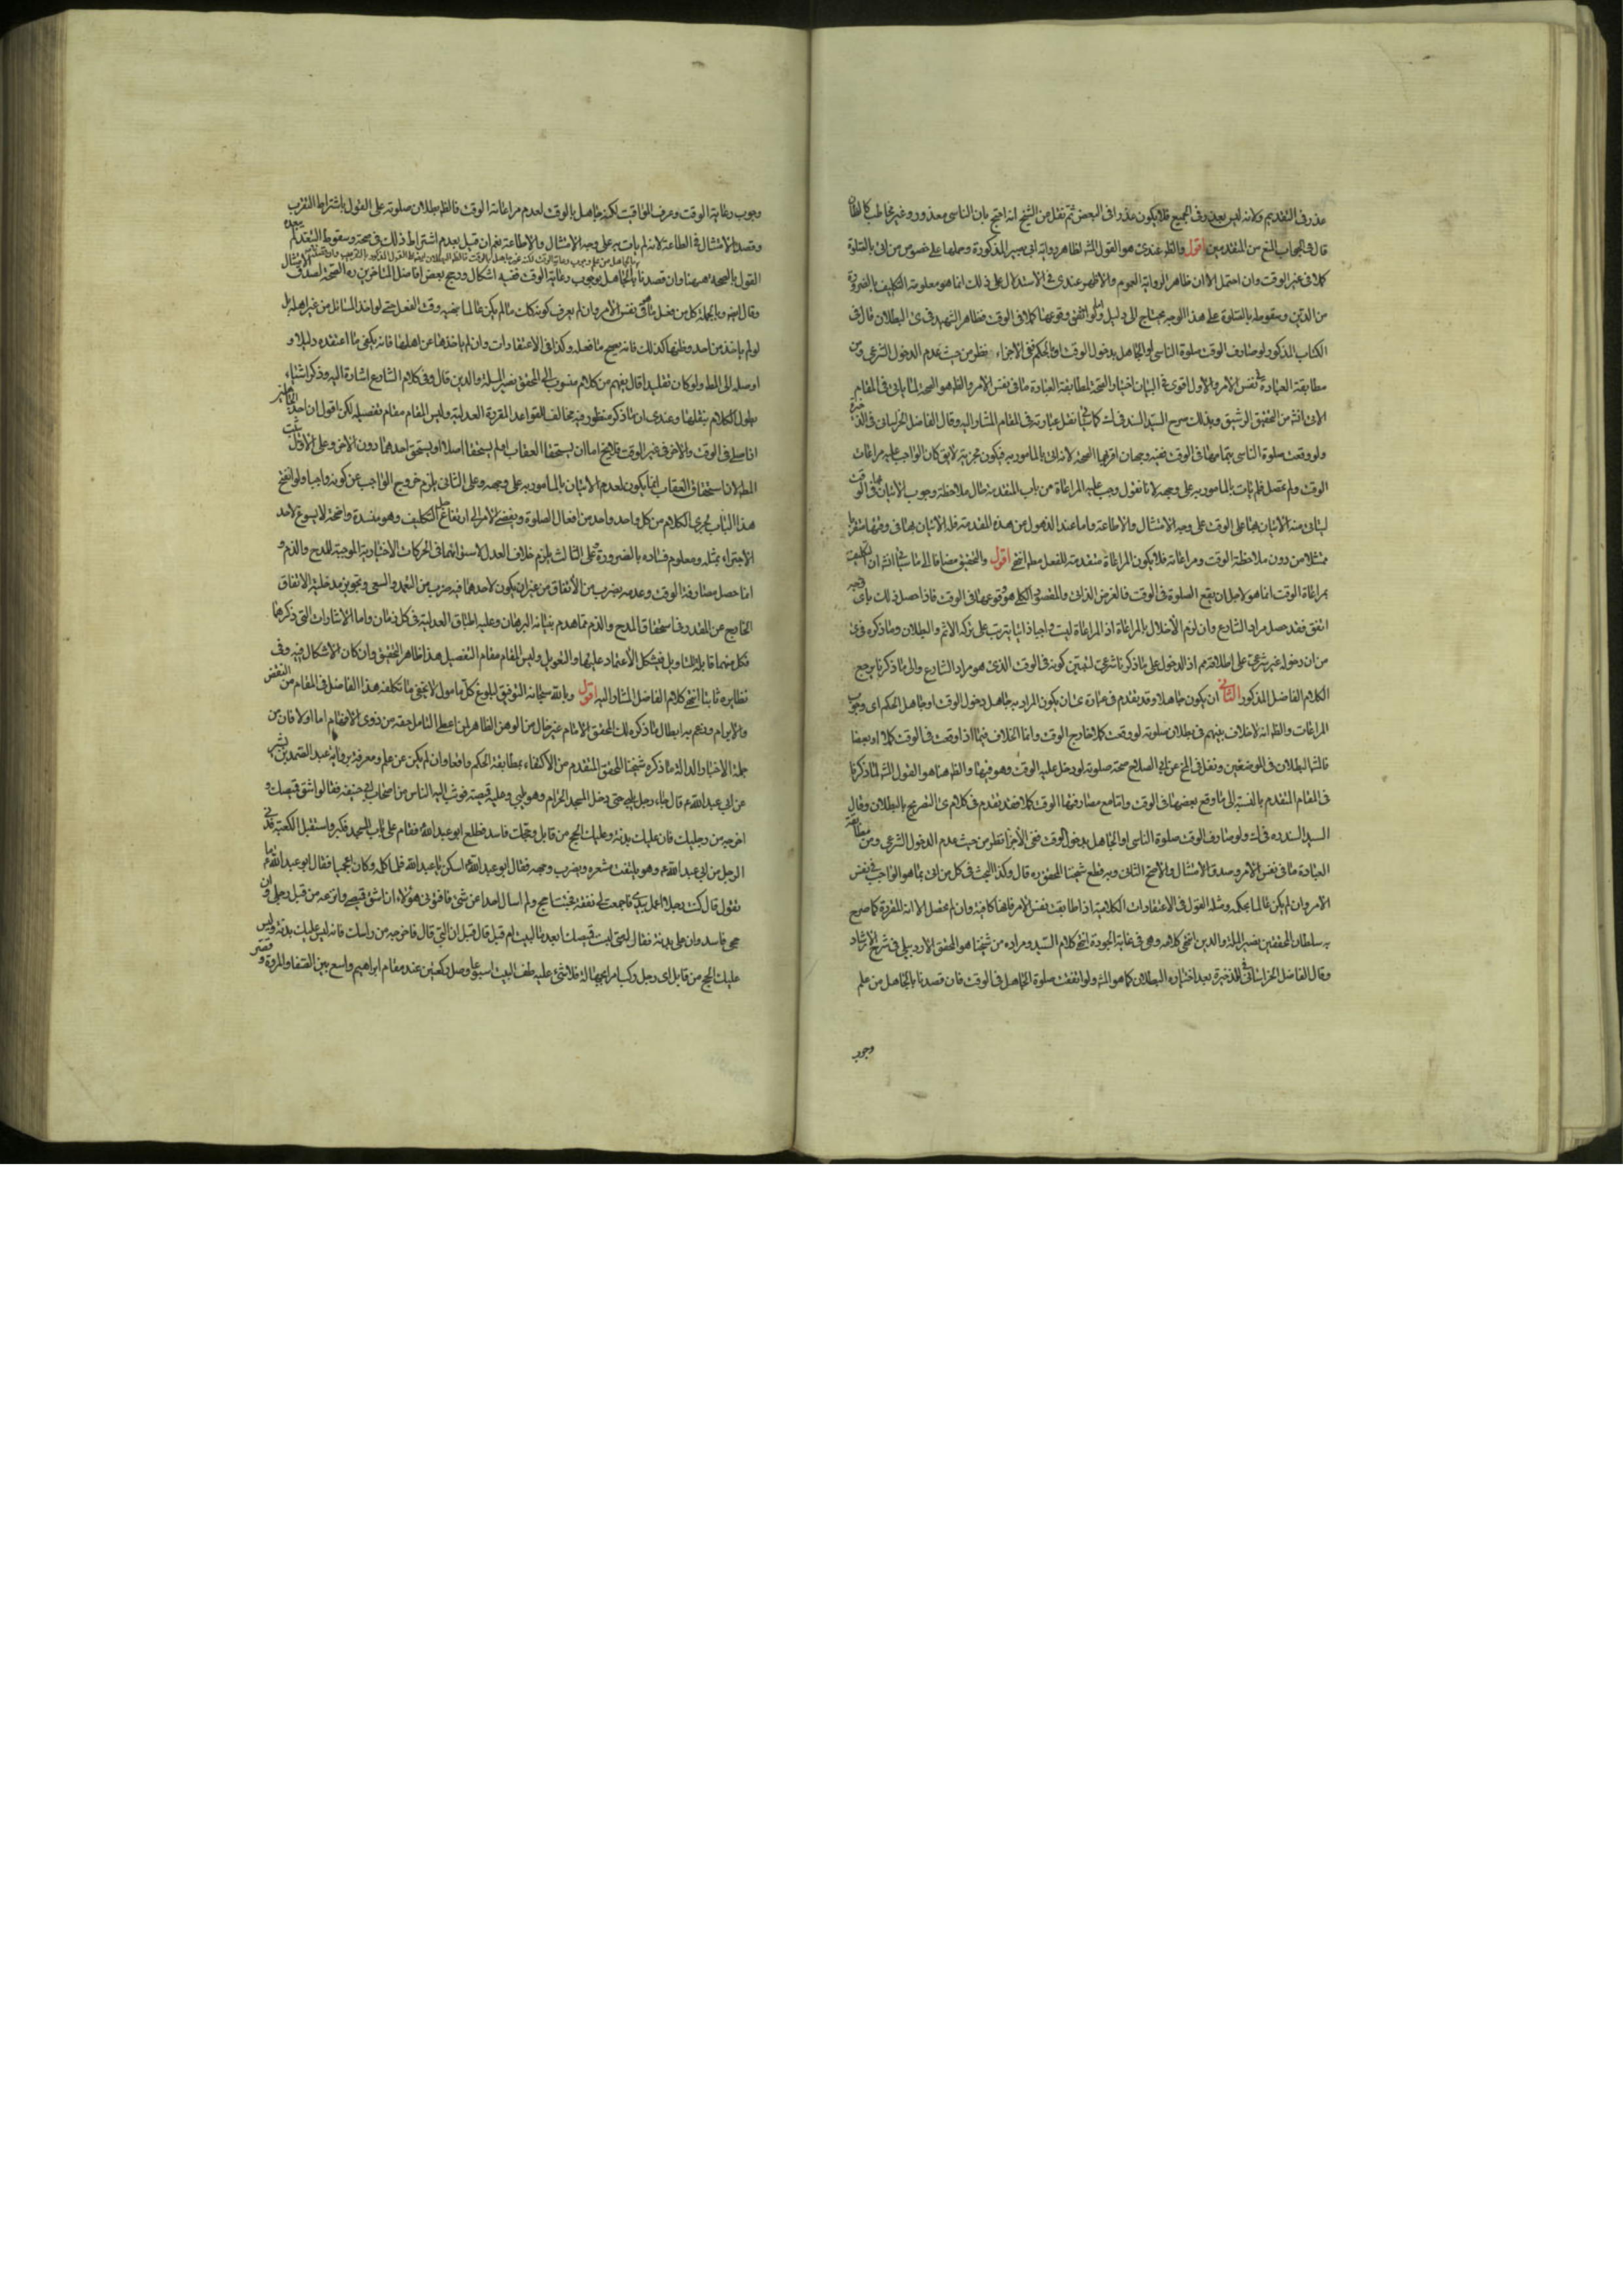 عذر فى التقديم ولانه ليس بعذر فى الجميع فلا يكون عذرا فى البعض ثم نقل من الشيخ انه احتج بان الناسى معذور وغير مخاطب كالظان
قال فى الجواب المنع من المقدمتين اقول والظ عندى هو القول الثه لظاهر رواية ابى بصير المذكورة وحملها على خصوص من اتى بالصلوة
كلا فى غير الوقت وان احتمل الا ان ظاهر الرواية العموم والاظهر عندى فى الاستدلال على ذلك انما هو معلومية التكليف بالضرورة
من الدين وسقوطه بالصلوة على هذا الوجه يحتاج الى دليل ولو اتفق وقوعها كلا فى الوقت فظاهر الشهيد فى ى البطلان قال فى
الكتاب المذكور لو صادف الوقت صلوة الناسى او الجاهل بدخول الوقت او بالحكم ففى الاجزاء نظر من حيث عدم الدخول الشرعى ومن
مطابقة العبادة فى نفس الامر والاول اقوى وفى البيان اختار الصحة لمطابقة العبادة ما فى نفس الامر والظ هو الصحة لما ياتى فى المقام
الاتى انش من التحقيق الرشيق وبذلك صرح السيد السند فى ك كما ياتى نقل عبارته فى المقام المشار اليه وقال الفاضل الخراسانى فى الذخيرة
ولو وقعت صلوة الناسى بتمامها فى الوقت ففيه وجهان اقربهما الصحة لانه اتى بالمامور به فيكون مجزيا لا يق كان الواجب عليه مراعات
الوقت ولم يحصل فلم يات بالمامور به على وجهه لانا نقول وجب عليه المراعاة من باب المقدمة حال ملاحظة وجوب الاتيان بها فى الوقت
ليتاتى منه الاتيان بها على الوقت على وجه الامتثال والاطاعة واما عند الذهول من هذه المقدمة فله الاتيان بها فى وقتها متقربا
ممتثلا من دون ملاحظة الوقت ومراعاته فلا يكون المراعاة متقدمة للفعل مطم انتهى اقول والتحقيق مضافا الى ما سياتى انش ان التكليف
بمراعاة الوقت انما هو لاجل ان يقع الصلوة فى الوقت فالغرض الذاتى والمقصود الكلى هو وقوعها فى الوقت فاذا حصل ذلك باى وجه
اتفق فقد حصل مراد الشارع وان لزم الاخلال بالمراعاة اذ المراعاة ليست واجبا ذاتيا يترتب على تركه الاثم والبطلان وما ذكره فى ى
من ان دخوله غير شرعى على اطلاقه مم اذ الدخول على ما ذكرنا شرعى لتبين كونه فى الوقت الذى هو مراد الشارع والى ما ذكرنا يرجع
الكلام الفاضل المذكور الثانى ان يكون جاهلا وقد تقدم فى عبارة ى ان يكون المراد به جاهل دخول الوقت او جاهل الحكم اى وجوب
المراعات والظ انه لا خلاف بينهم فى بطلان صلوته لو وقعت كلا خارج الوقت وانما الخلاف فيما اذا وقعت فى الوقت كلا او بعضا
فالثه البطلان فى الموضعين ونقل فى المخ عن ابى الصلاح صحة صلوته لو دخل عليه الوقت وهو فيها والظ هنا هو القول الثه لما ذكرنا
فى المقام المتقدم بالنسبة الى ما وقع بعضها فى الوقت واما مع مصادفتها الوقت كلا فقد تقدم فى كلام ى التصريح بالبطلان وقال
السيد السند ره فى ك ولو صادف الوقت صلوة الناسى او الجاهل بدخول الوقت ففى الاجزا نظر من حيث عدم الدخول الشرعى ومن مطابقة
العبادة ما فى نفس الامر وصدق الامتثال والاصح الثانى وبه قطع شيخنا المحقق ره قال وكذا البحث فى كل من اتى بما هو الواجب فى نفس
الامر وان لم يكن عالما بحكمه ومثله القول فى الاعتقادات الكلامية اذا طابقت نفس الامر فانها كافية وان لم يحصل الا انه المقررة كما صرح
به سلطان المحققين نصير الملة والدين انتهى كلامه وهى فى غاية الجودة انتهى كلام السيد ومراده من شيخنا هو المحقق الاردبيلى فى شرح الارشاد
وقال الفاضل الخراسانى فى الذخيرة بعد اختياره البطلان كما هو المشه ولو اتفقت صلوة الجاهل فى الوقت فان قصدنا بالجاهل من علم
وجوب
وجوب رعاية الوقت وعرف المواقيت لكنه جاهل بالوقت لعدم مراعاته الوقت فالظ بطلان صلوته على القول باشتراط التقرب
وقصد الامتثال فى الطاعة لانه لم يات به على وجه الامتثال والاطاعة نعم ان قيل بعدم اشتراط ذلك فى صحته وسقوط التعبد به لم
القول بالصحة ههنا وان قصدنا بالجاهل بوجوب رعاية الوقت ففيه اشكال ورجح بعض افاضل المتاخرين ره الصحة لصدق الامتثال
وقال ايض وبالجملة كل من فعل ما فى نفس الامر وان لم يعرف كونه كك ما لم يكن عالما بنهيه وقت الفعل حتى لو اخذ المسائل من غير اهله بل
لو لم ياخذ من احد وظنها كذلك فانه يصح ما فعله وكذا فى الاعتقادات وان لم ياخذها عن اهلها فانه يكفى ما اعتقده دليلا و
اوصله الى المط ولو كان تقليدا قال يفهم من كلام منسوب الى المحقق نصير الملة والدين قال وفى كلام الشارع اشارة اليه وذكر اشياء
يطول الكلام بنقلها وعندى ان ما ذكره منظور فيه مخالف للقواعد المقررة العدلية وليس المقام مقام تفصيله لكن اقول ان احد الجاهلين
اذا صلى فى الوقت والاخر فى غير الوقت فلا يخ اما ان يستحقا العقاب او لم يستحقا اصلا او يستحق احدهما دون الاخر وعلى الاول يثبت
المط لان استحقاق العقاب انما يكون لعدم الاتيان بالمامور به على وجهه وعلى الثانى يلزم خروج الواجب عن كونه واجبا ولو انفتح
هذا الباب يجرى الكلام من كل واحد واحد من افعال الصلوة ويفضى الامر الى ارتفاع جل التكليف وهو مفسدة واضحة لا يسوغ لاحد
الاجتراء بمثله ومعلوم فساده بالضرورة وعلى الثالث يلزم خلاف العدل لاستوائهما فى الحركات الاختيارية الموجبة للمدح والذم و
انما حصل مصادفة الوقت وعدمه بضرب من الاتفاق من غير ان يكون لاحدهما فيه ضرب من التعمد والسعى وتجويز مدخلية الاتفاق
الخارج عن المقدور فى استحقاق المدح والذم مما هدم بنيانه البرهان وعليه اطباق العدلية فى كل زمان واما الاشارات التى ذكرها
فكل منهما قابلة للتاويل فيشكل الاعتماد عليها والتعويل وليس المقام مقام التفصيل هذا ظاهر التحقيق وان كان الاشكال فيه وفى
نظايره ثابتا انتهى كلام الفاضل المشار اليه اقول وبالله سبحانه التوفيق لبلوغ كل مامول لا يخفى ما تكلفه هذا الفاضل فى المقام من النقض
والابرام وزعم به ابطال ما ذكره ذلك المحقق الامام غير خال من الوهن الظاهر لمن اعطى التامل حقه من ذوى الافهام اما اولا فان من
جملة الاخبار الدالة ما ذكره شيخنا المحقق المتقدم من الاكتفاء بمطابقة الحكم واقعا وان لم يكن عن علم ومعرفة برواية عبد الصمد بن بشير
عن ابى عبد الله ع قال جاء رجل يلبى حتى دخل المسجد الحرام وهو يلبى وعليه قميصه فوثب اليه الناس من اصحاب ابى حنيفة فقالوا شق قميصك و
اخرجه من رجليك فان عليك بدنة وعليك الحج من قابل وحجك فاسد فطلع ابو عبد الله ع فقام على باب المسجد فكبر واستقبل الكعبة فدنى
الرجل من ابى عبد الله ع وهو ينتف شعره ويضرب وجهه فقال ابو عبد الله ع اسكن يا عبد الله فلما كلمه وكان اعجميا فقال ابو عبد الله ع ما
تقول قال كنت رجلا اعمل بيدى فاجمعت لى نفقة فجئت احج ولم اسال احدا عن شئ فافتونى هؤلاء ان اشق قميصى وانزعه من قبل رجلى وان
حجى فاسد وان على بدنة فقال له متى لبست قميصك ابعد ما لبيت ام قبل قال قبل ان البى قال فاخرجه من راسك فانه ليس عليك بدنة وليس
عليك الحج من قابل اى رجل ركب امرا بجهالة فلا شئ عليه طف بالبيت اسبوعا وصل ركعتين عند مقام ابراهيم واسع بين الصفا والمروة وقصر